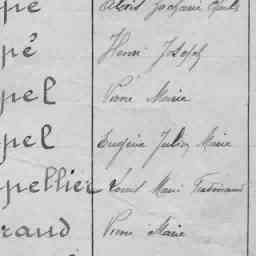 pé Alois
pé Henri Joseph
pel Pierre Marie
pel Eugène Julien Marie
pellier Louis Marie Ferdinand
raud Pierre Marie